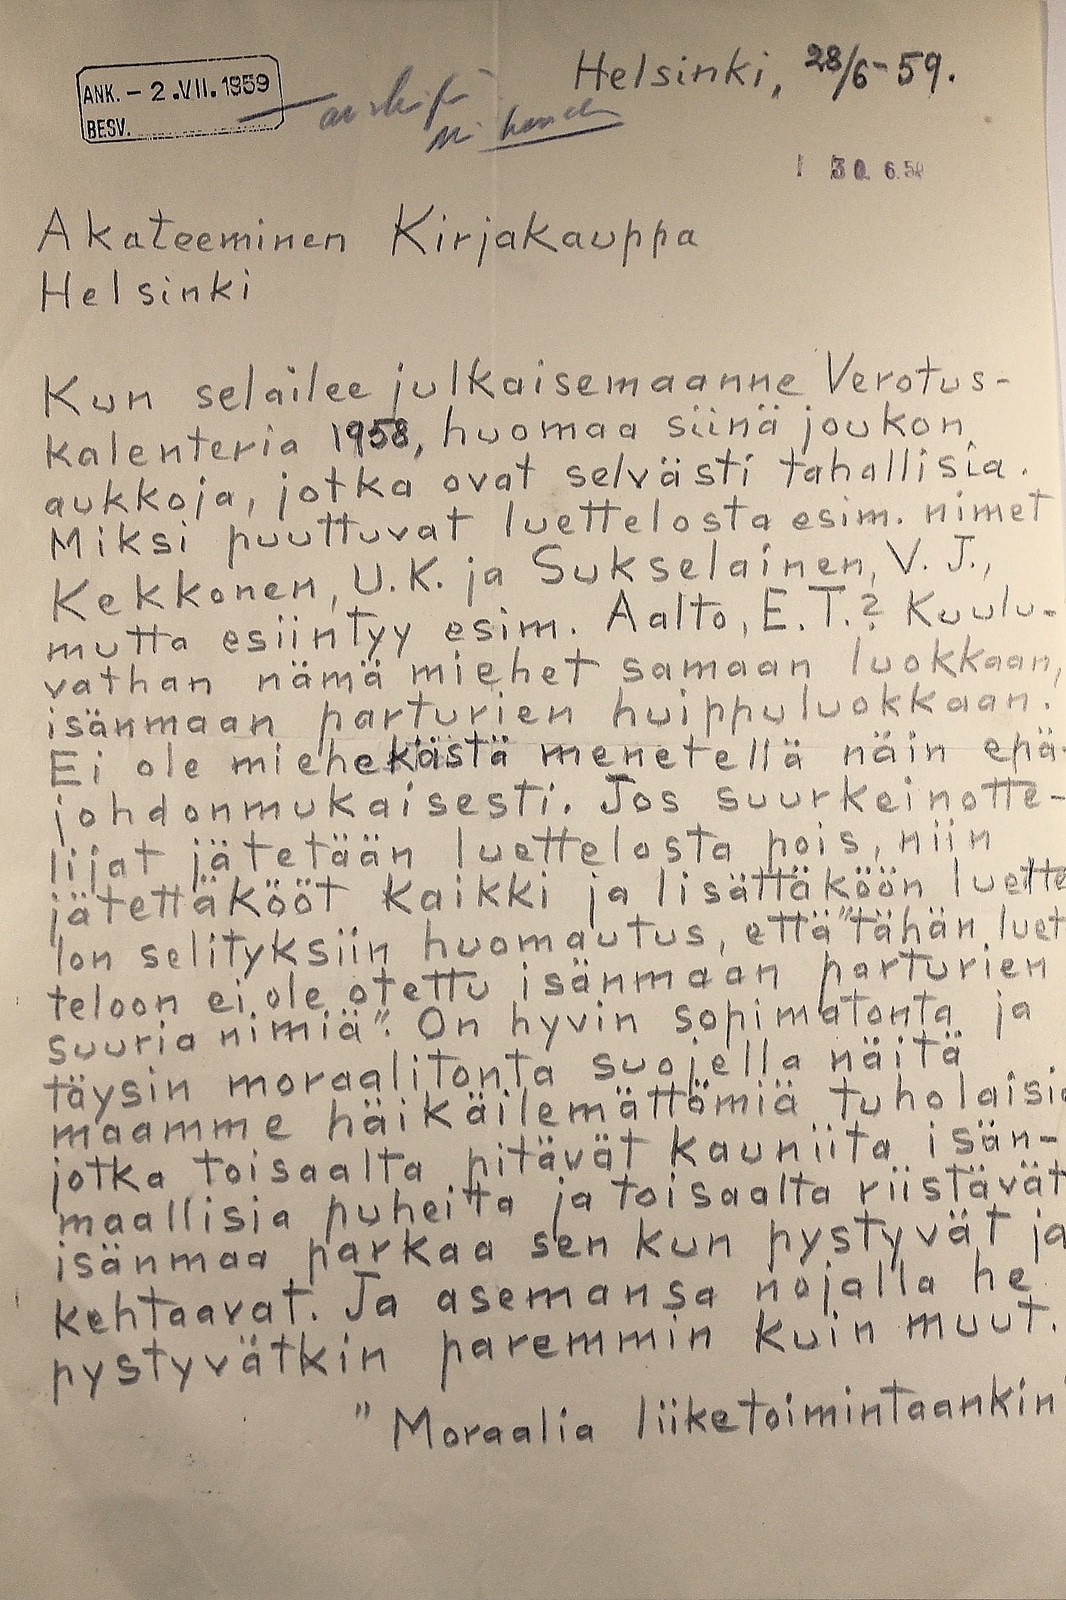 Helsinki, 28/6-59.
ANK. - 2.VII. 1959
BESV.
30. 6.59
Akateeminen Kirjakauppa
Helsinki
Kun selailee julkaisemaanne Verotus-
kalenteria 1958, huomaa siinä joukon
aukkoja, jotka ovat selvästi tahallisia.
Miksi puuttuvat luettelosta esim. nimet
Kekkonen, U.K. ja Sukselainen, V.J.,
mutta esiintyy esim. Aalto, E.T.? Kuulu-
vathan nämä miehet samaan luokkaan,
isänmaan parturien huippuluokkaan.
Ei ole miehekästä menetellä näin epä-
johdonmukaisesti. Jos suurkeinotte-
lijat jätetään luettelosta pois, niin
jätettäkööt kaikki ja lisättäköön luette
lon selityksiin huomautus, että "tähän luet
teloon ei ole otettu isänmaan parturien
suuria nimiä". On hyvin sopimatonta ja
täysin moraalitonta suojella näitä
maamme häikäilemättömiä tuholaisia
jotka toisaalta pitävät kauniita isän-
maallisia puheita ja toisaalta riistävät
isänmaa parkaa sen kun pystyvät ja
kehtaavat. Ja asemansa nojalla he
pystyvätkin paremmin kuin muut.
"Moraalia liiketoimintaankin"